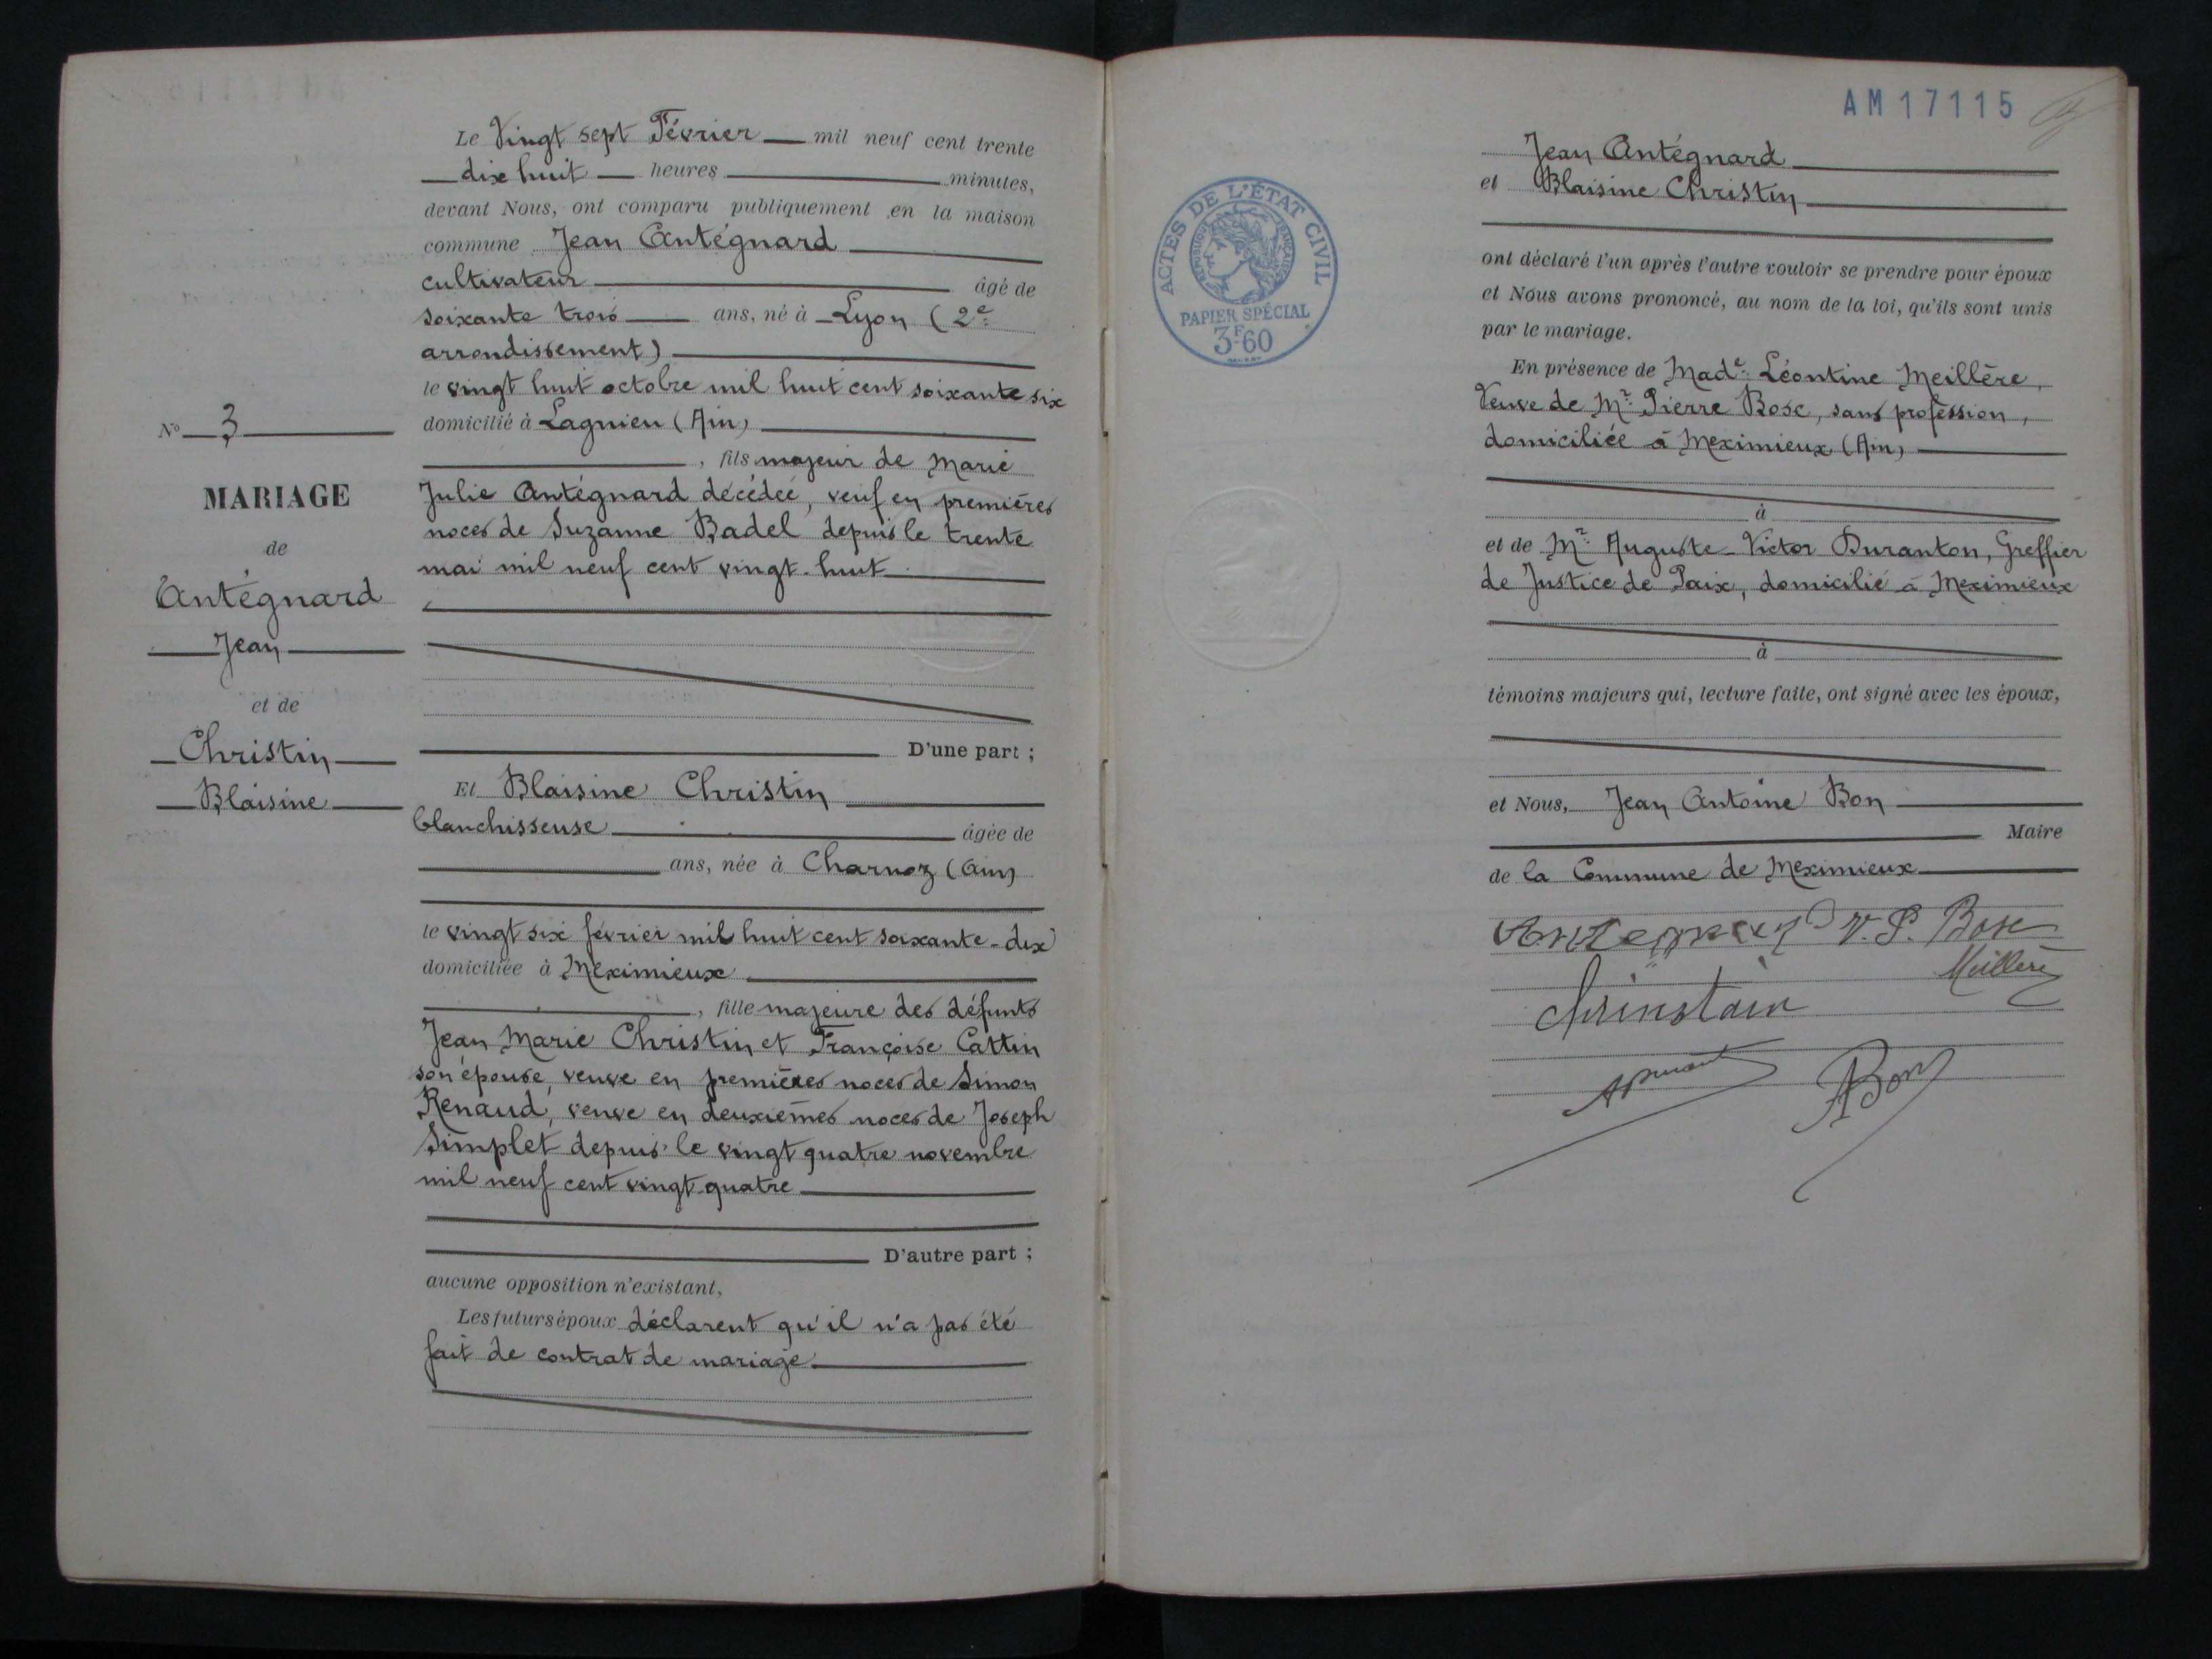 Le Vingt sept Février mil neuf cent trente
dix huit heures minutes,
devant Nous, ont comparu publiquement en la maison
commune Jean Antégnard
cultivateur âgé de
soixante trois ans, né à Lyon (2e
arrondissement)
le vingt huit octobre mil huit cent soixante six
domicilié à Lagnieu (Ain)
, fils majeur de Marie
Julie Antégnard décédée, veuf en premières
noces de Suzanne Badel depuis le trente
mai mil neuf cent vingt-huit
D'une part ;
Et Blaisine Christin
blanchisseuse âgée de
ans, née à Charnoz (Ain)
le vingt six février mil huit cent soixante-dix
domiciliée à Meximieux
, fille majeure des défunts
Jean Marie Christin et Françoise Cattin
son épouse, veuve en premières noces de Simon
Renaud, veuve en deuxièmes noces de Joseph
Simplet depuis le vingt quatre novembre
mil neuf cent vingt quatre
D'autre part ;
aucune opposition n'existant,
Les futurs époux déclarent qu'il n'a pas été
fait de contrat de mariage.
No 3
MARIAGE
de
Antégnard
Jean
et de
Christin
Blaisine
AM 17115
ACTES DE L'ÉTAT CIVIL
RÉPUBLIQUE FRANÇAISE
PAPIER SPÉCIAL
3F60
Jean Antégnard
et Blaisine Christin
ont déclaré l'un après l'autre vouloir se prendre pour époux
et Nous avons prononcé, au nom de la loi, qu'ils sont unis
par le mariage.
En présence de Made Léontine Meillère,
Veuve de Mr Pierre Bose, sans profession,
domiciliée à Meximieux (Ain)
à
et de Mr Auguste Victor Duranton, Greffier
de Justice de Paix, domicilié à Meximieux
à
témoins majeurs qui, lecture faite, ont signé avec les époux,
et Nous, Jean Antoine Bon
Maire
de la Commune de Meximieux
Antegnard V. P. Bose
Meillère
ABon